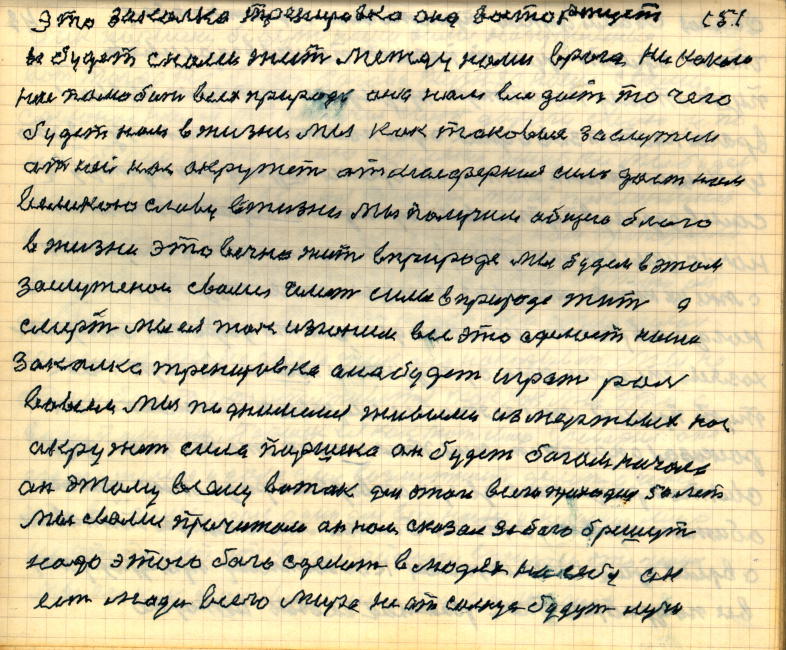 это закалка тренировка она вото 151
будет снами жит между нами врага не какого
нас природа она нам все даст то чего
будет нам в жизни мы как таковыя заслужем
от ней нас окружет атмасферная сила даст нам
великою славу вжизни мы получим общее благо
в жизни это вечна жит вприроде мы будем в этом
заслуженои своими сила вприроде жит а
смерт мы ея так изгоним все это сделает наша
закалка тренировка анабудет играт рол
мы паднимемся живыми из мертвых нас
акружит сила паршека он будет богом начала
он этому всему вотак для этого всего приходил 50 лет
мы свами прочитали он нам сказал за бога брешут
надо этого бога сделат в людях на себу он
ест люди всего мира не от солнца будут луча